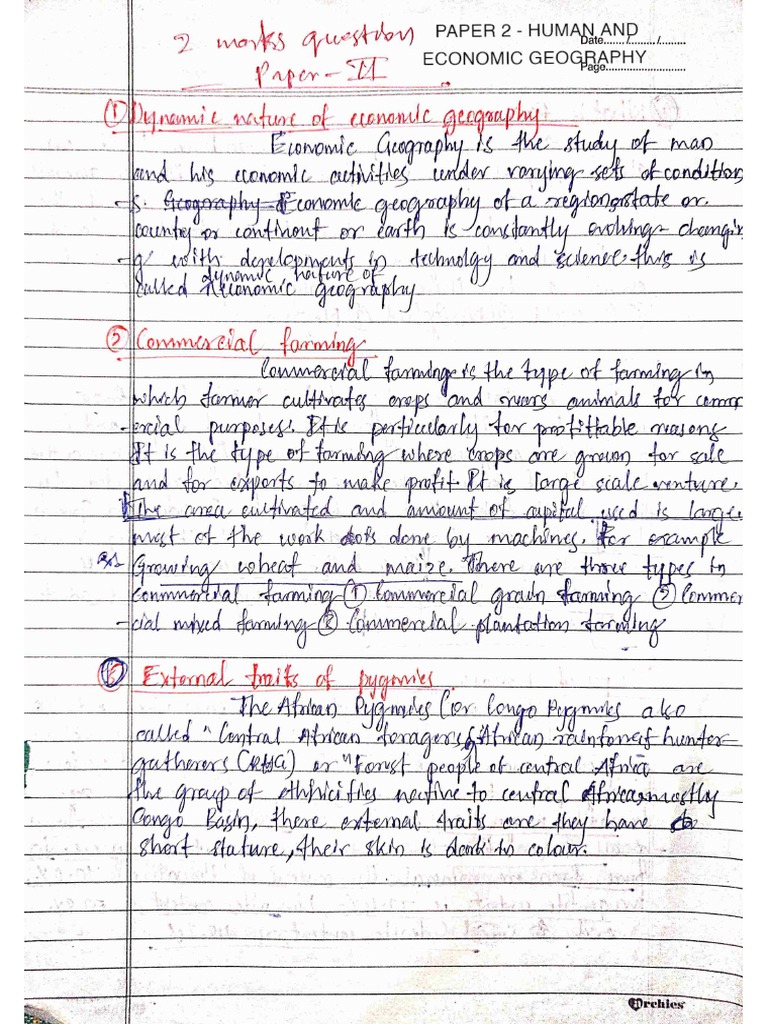 2 marks question
Paper-II
PAPER 2 - HUMAN AND
ECONOMIC GEOGRAPHY
Date......./......./.......
Page.........................
① Dynamic nature of economic geography
Economic Geography is the study of man
and his economic activities under varying sets of condition
-s. Geography Economic geography of a region, state or
country or continent or earth is constantly evolving changin
g with developments in technolgy and science. this is
dynamic nature of
called economic geography
② Commercial farming
Commercial farming is the type of farming in
which farmer cultivates crops and animals for comm
-ercial purposes. It is perticularly for profittable reasons
It is the type of farming where crops are grown for sale
and for exports to make profit. It is large scale venture.
The area cultivated and amount of capital used is large.
most of the work is done by machines. For example
Growing wheat and maize. There are three types in
commercial farming ① Commercial grain farming ② Commer
-cial mixed farming ③ Commercial plantation farming
External traits of pygmies
The African Pygmies (or Congo Pygmies also
called "Central African foragers, African rainforest hunter
gatherers (RHG) or "Forest people of central Africa are
the group of ethnicities native to central Africa mostly
Congo Basin, there external traits are they have
short stature, their skin is dark in colour.
Archies